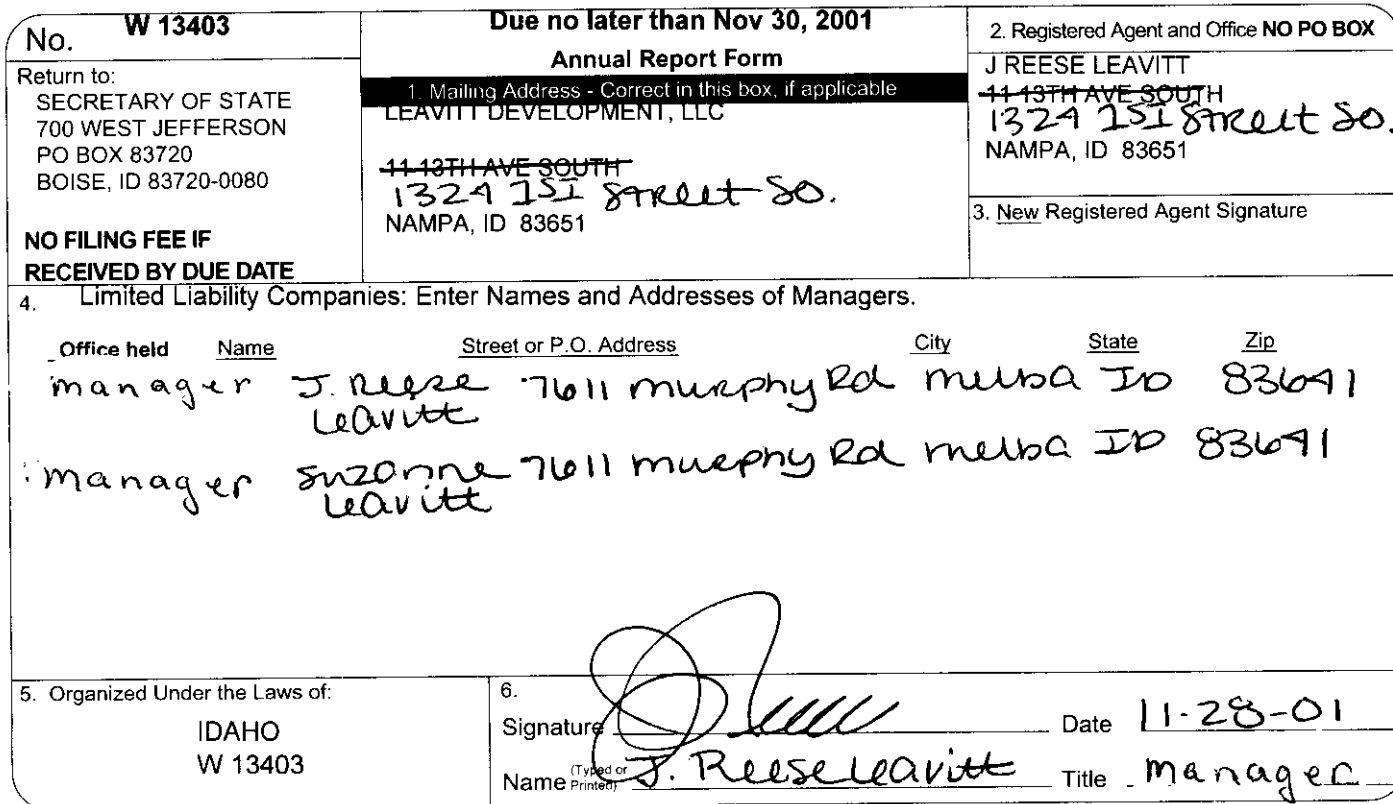 No. W 13403
Return to:
SECRETARY OF STATE
700 WEST JEFFERSON
PO BOX 83720
BOISE, ID 83720-0080
NO FILING FEE IF
RECEIVED BY DUE DATE
Due no later than Nov 30, 2001
Annual Report Form
1. Mailing Address - Correct in this box, if applicable
LEAVITT DEVELOPMENT, LLC
11-13TH AVE SOUTH
1324 1ST Street So.
NAMPA, ID 83651
2. Registered Agent and Office NO PO BOX
J REESE LEAVITT
11-13TH AVE SOUTH
1324 1ST Street So.
NAMPA, ID 83651
3. New Registered Agent Signature
4. Limited Liability Companies: Enter Names and Addresses of Managers.
Office held Name Street or P.O. Address City State Zip
manager J. Reese 7611 Murphy Rd Melba ID 83641
Leavitt
manager Suzanne 7611 Murphy Rd Melba ID 83641
Leavitt
5. Organized Under the Laws of:
IDAHO
W 13403
6.
Signature Date 11-28-01
Name (Typed or Printed) J. Reese Leavitt Title manager